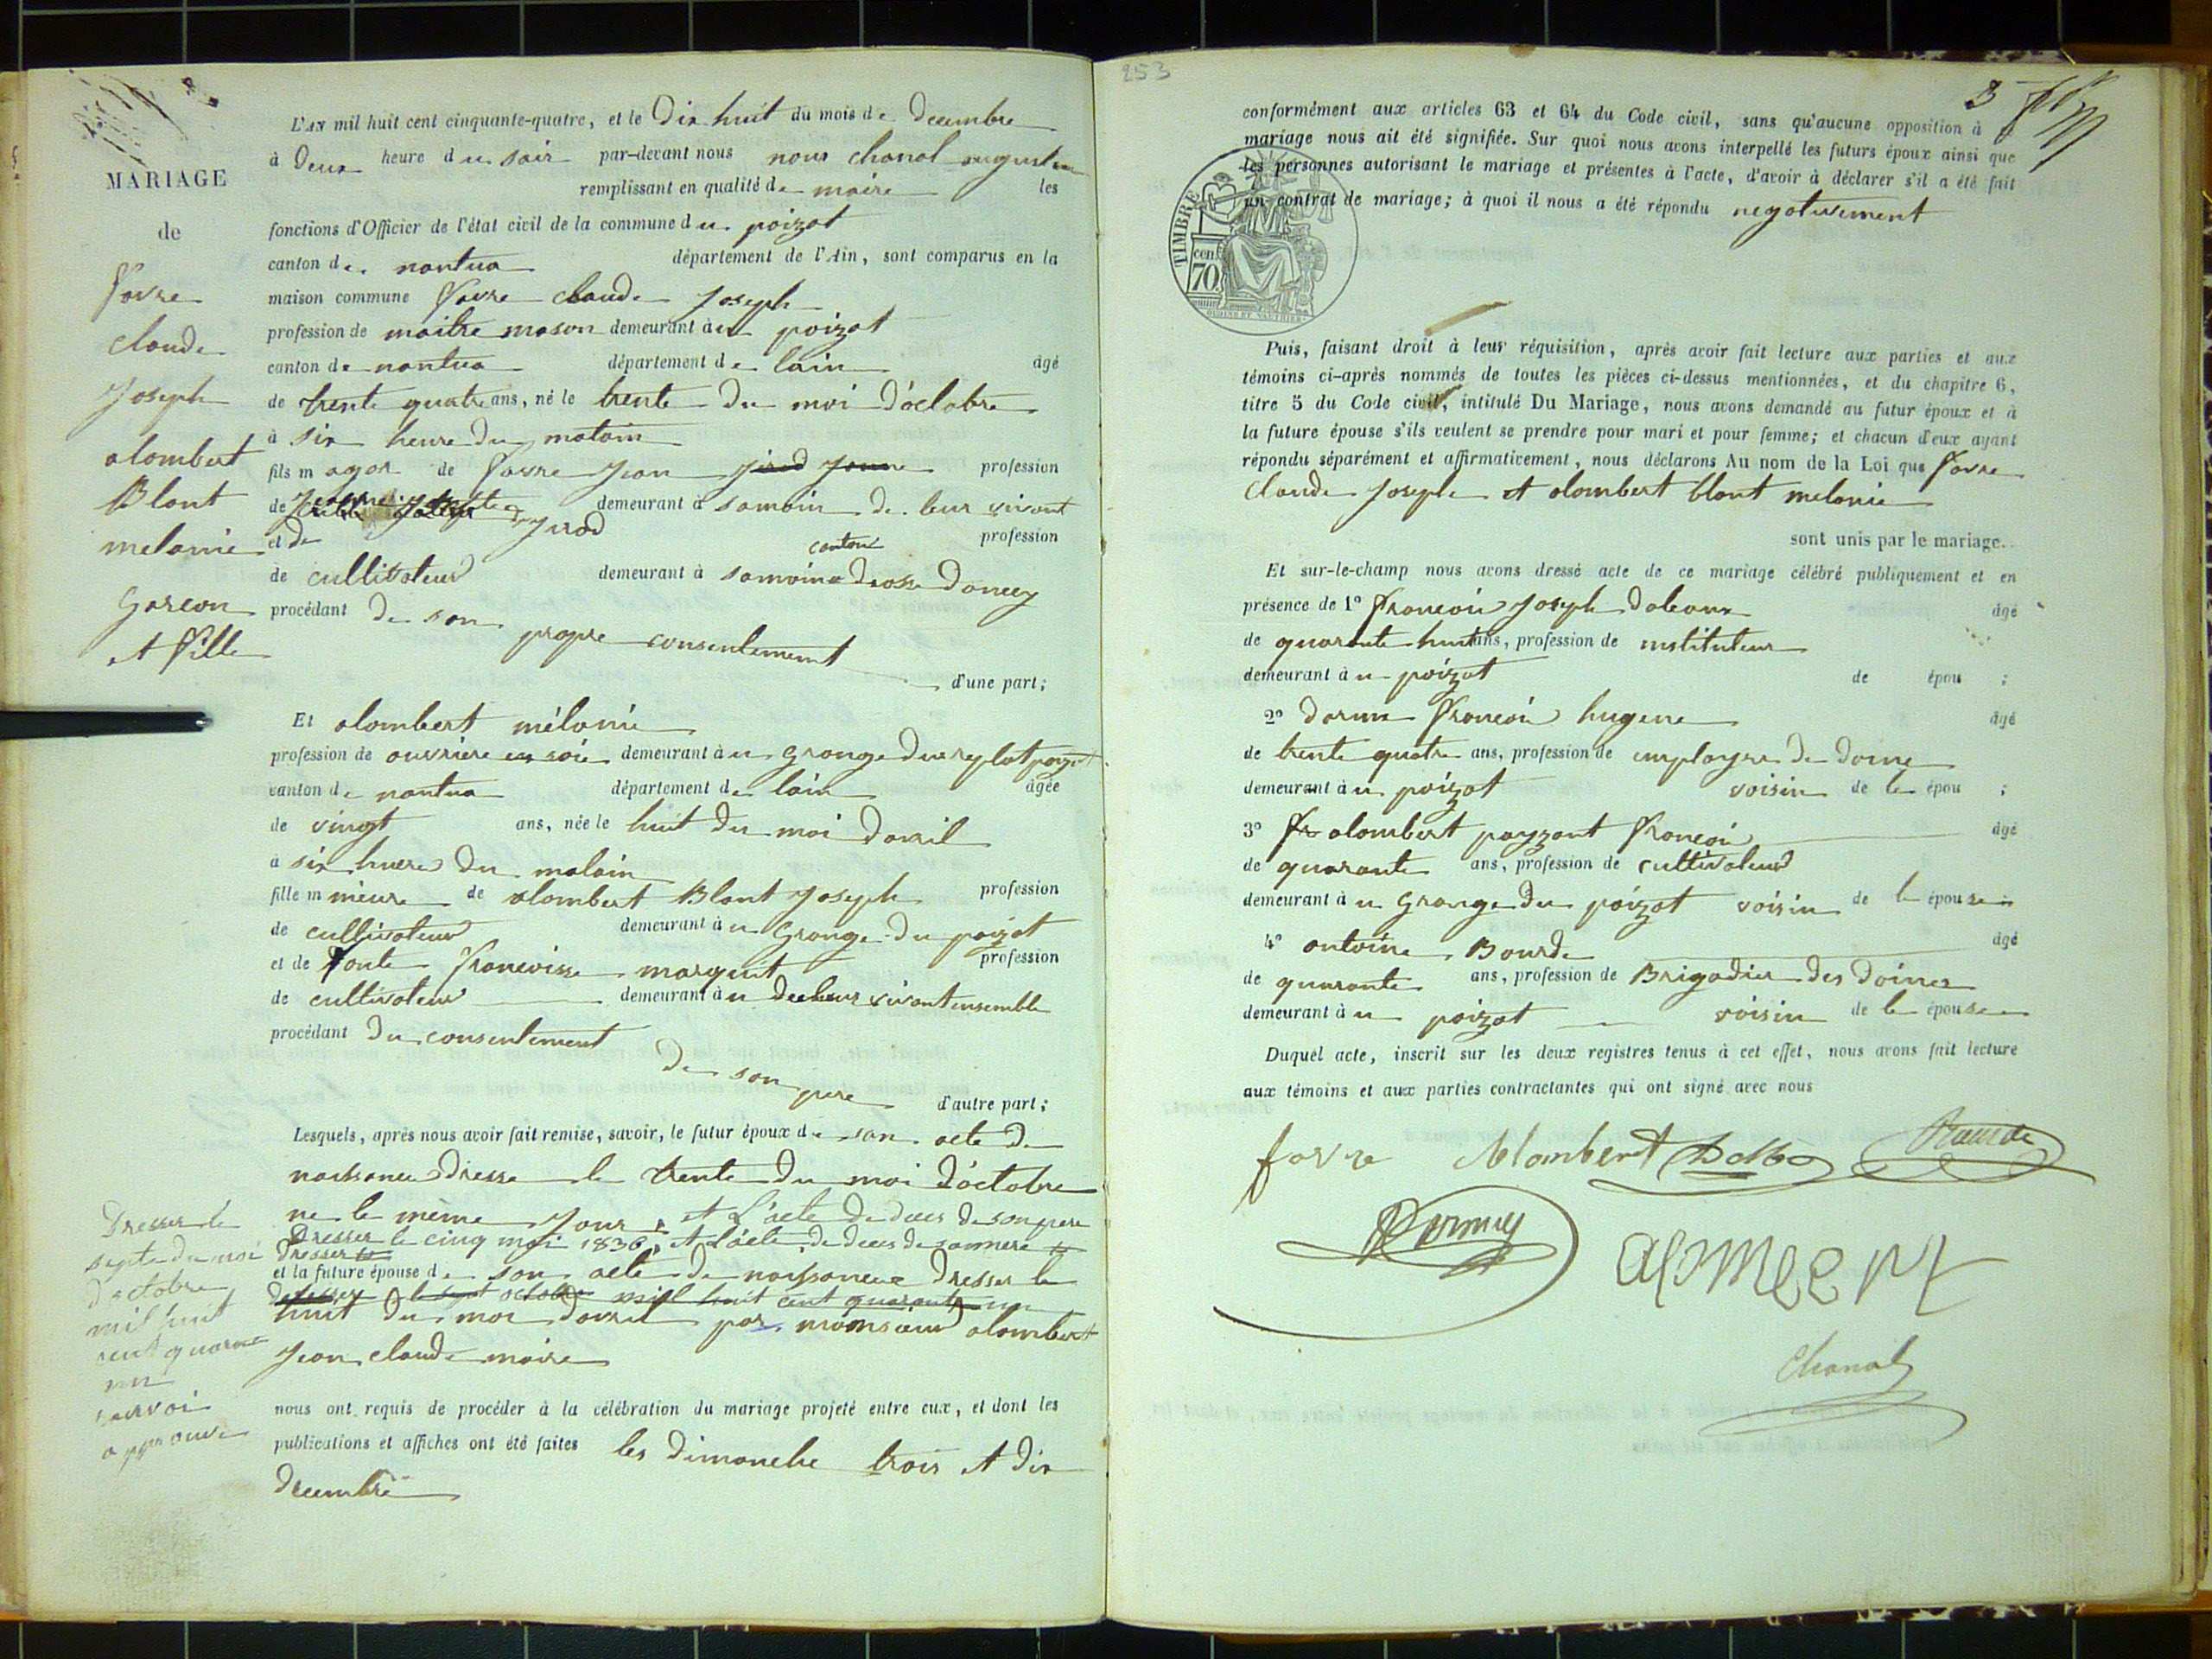 MARIAGE
de
favre
claude
Joseph
alombert
Blant
melanie
Garcon
et fille
L'AN mil huit cent cinquante-quatre, et le Dix huit du mois de Decembre
à Deux heure du soir par-devant nous nous chanal augustin
remplissant en qualité de maire les
fonctions d'Officier de l'état civil de la commune du poizat
canton de nantua département de l'Ain, sont comparus en la
maison commune favre claude Joseph
profession de maitre mason demeurant àu poizat
canton de nantua département de lain âgé
de trente quatre ans, né le trente Du moi D'octobre
à six heure Du matain
fils m agor de favre Jean profession
de demeurant à samoin De leur vivant
et De Jirod profession
canton
de cultivateur demeurant à samoin
procédant De son propre consentement
d'une part;
Et alombert mélanie
profession de ouvriere en soie demeurant àu Grange
canton de nantua département de lain âgée
de vingt ans, née le huit Du moi Davril
à six huere Du matain
fille m mieure de alombert Blant Joseph profession
de cultivateur demeurant àu Grange Du poizat
et de Ponte francoisse margerit profession
de cultivateur demeurant àu vivant ensemble
procédant Du consentement
De son pere
d'autre part;
Lesquels, après nous avoir fait remise, savoir, le futur époux de son acte De
naissance Dresse le trente Du moi D'octobre
ne le même Jour et L'acte De deces De son pere
Dresser le cinq mai 1836, et L'acte De deces De sa mere
Dresser le
et la future épouse de son acte De naissance Dresser le
le sept octobre mil huit cent quarante un
huit Du moi Davril par monsieur alombert
Jean claude maire
Dresser le
septe du moi
d'octobre
mil huit
cent quarante
un
renvoi
approuve
nous ont requis de procéder à la célébration du mariage projeté entre eux, et dont les
publications et affiches ont été faites les Dimanche trois et Dix
Decembre
253
3
conformément aux articles 63 et 64 du Code civil, sans qu'aucune opposition à
mariage nous ait été signifiée. Sur quoi nous avons interpellé les futurs époux ainsi que
les personnes autorisant le mariage et présentes à l'acte, d'avoir à déclarer s'il a été fait
un contrat de mariage; à quoi il nous a été répondu negativement
TIMBRE
cen.
70
Puis, faisant droit à leur réquisition, après avoir fait lecture aux parties et aux
témoins ci-après nommés de toutes les pièces ci-dessus mentionnées, et du chapitre 6,
titre 5 du Code civil, intitulé Du Mariage, nous avons demandé au futur époux et à
la future épouse s'ils veulent se prendre pour mari et pour femme; et chacun d'eux ayant
répondu séparément et affirmativement, nous déclarons Au nom de la Loi que favre
Claude Joseph et alombert blant melanie
sont unis par le mariage.
Et sur-le-champ nous avons dressé acte de ce mariage célébré publiquement et en
présence de 1° francois Joseph âgé
de quarante huit ans, profession de instituteur
demeurant à u poizat de épou ;
2° francois hugene âgé
de trente quatre ans, profession de employer De Doine
demeurant à u poizat voisin de le épou ;
3° fr alombert payzant francoi âgé
de quarante ans, profession de cultivateur
demeurant à u Grange Du poizat voisin de le épouse
4° antoine Bourde âgé
de quarante ans, profession de Brigadier Des Doines
demeurant à u poizat voisin de le épouse
Duquel acte, inscrit sur les deux registres tenus à cet effet, nous avons fait lecture
aux témoins et aux parties contractantes qui ont signé avec nous
favre Alombert Bourde
Chanal